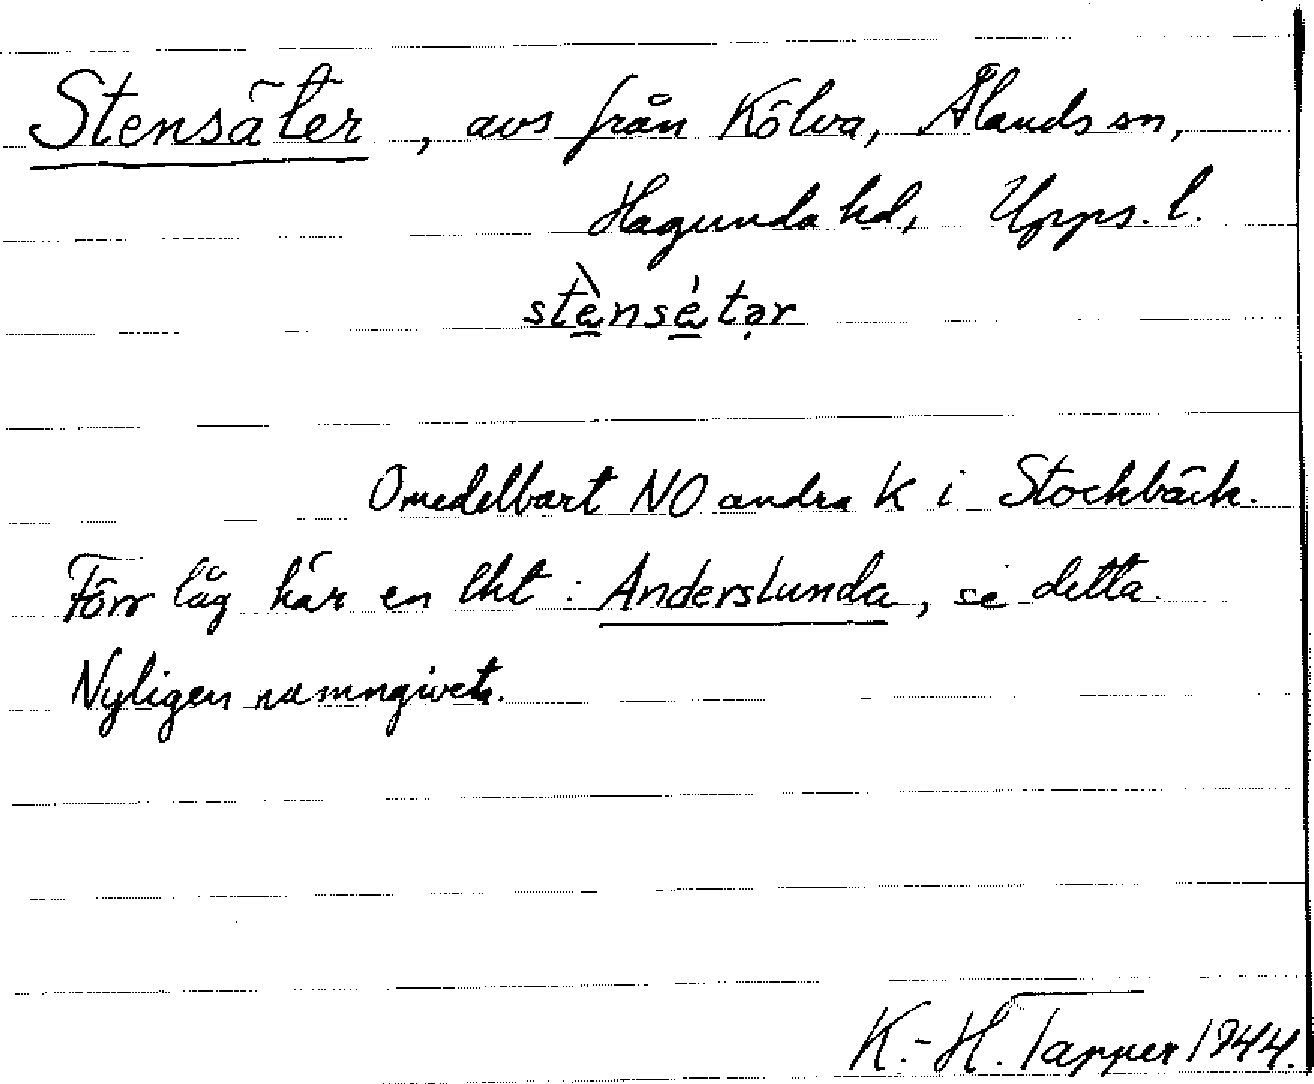 Stensäter, avs från Kölva, Ålands sn,
Hagunda hd, Upps. l.
stènsétər
Omedelbart NO andra K i Stockbäck.
Förr låg här en lht: Anderslunda, se detta.
Nyligen namngivet.
K.-H. Tapper 1944.